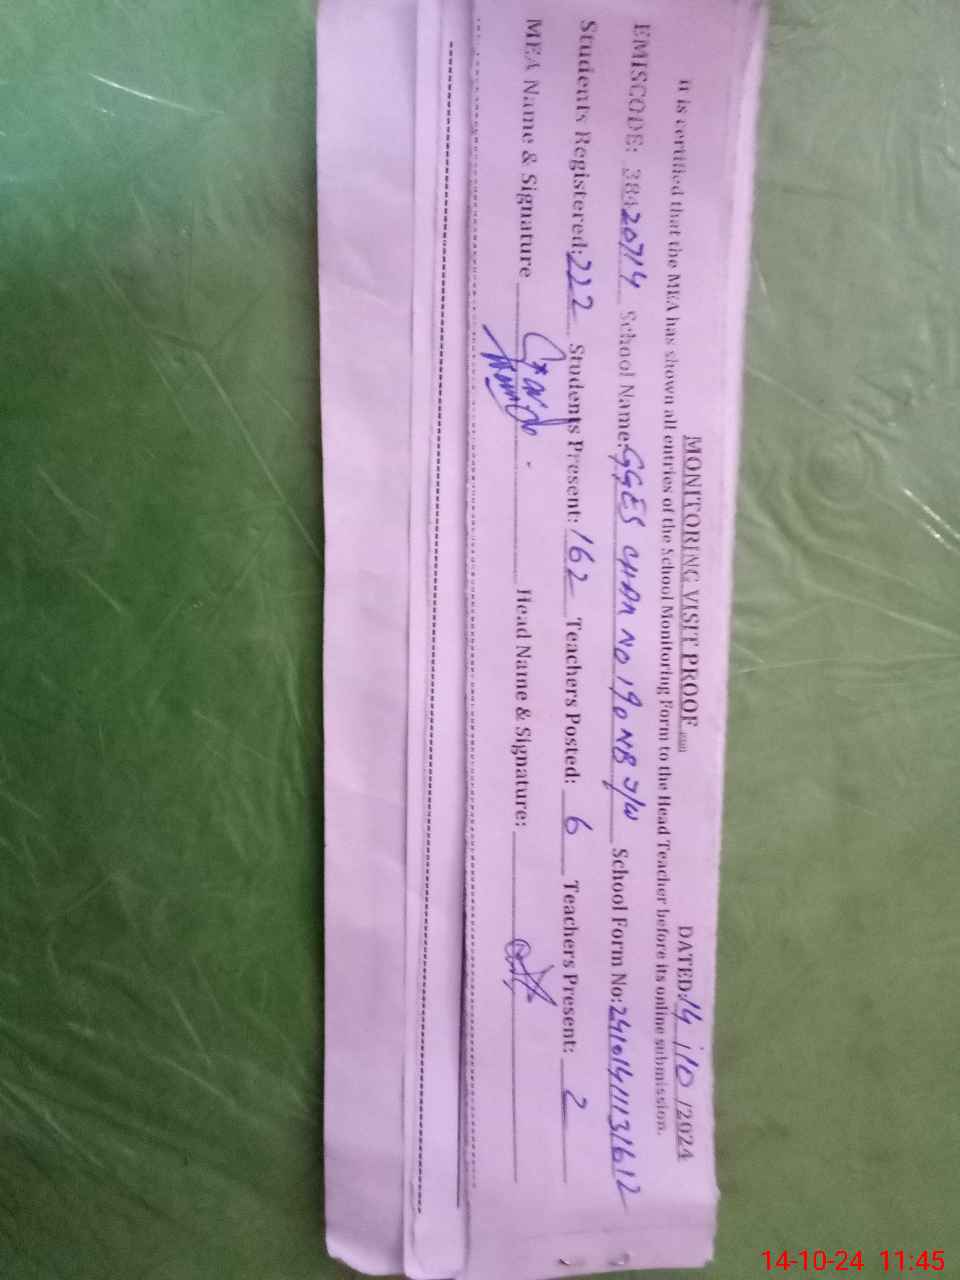 MONITORING VISIT PROOF
DATED: 14 / 10 /2024
It is certified that the MEA has shown all entries of the School Monitoring Form to the Head Teacher before its online submission.
EMISCODE: 38420714 School Name: GGES CHAK NO 190 NB School Form No: 24101411131612
Students Registered: 222 Students Present: 162 Teachers Posted: 6 Teachers Present: 2
MEA Name & Signature Head Name & Signature:
14-10-24 11:45